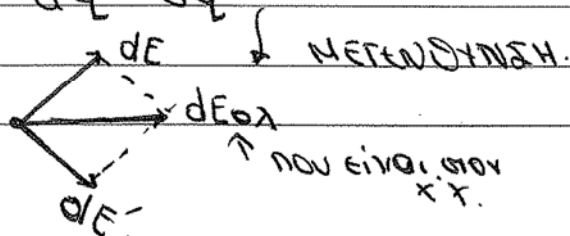 dE
ΜΕΓΕΝΘΥΝΣΗ.
dEολ
↑ που είναι στον
x x'.
dE'